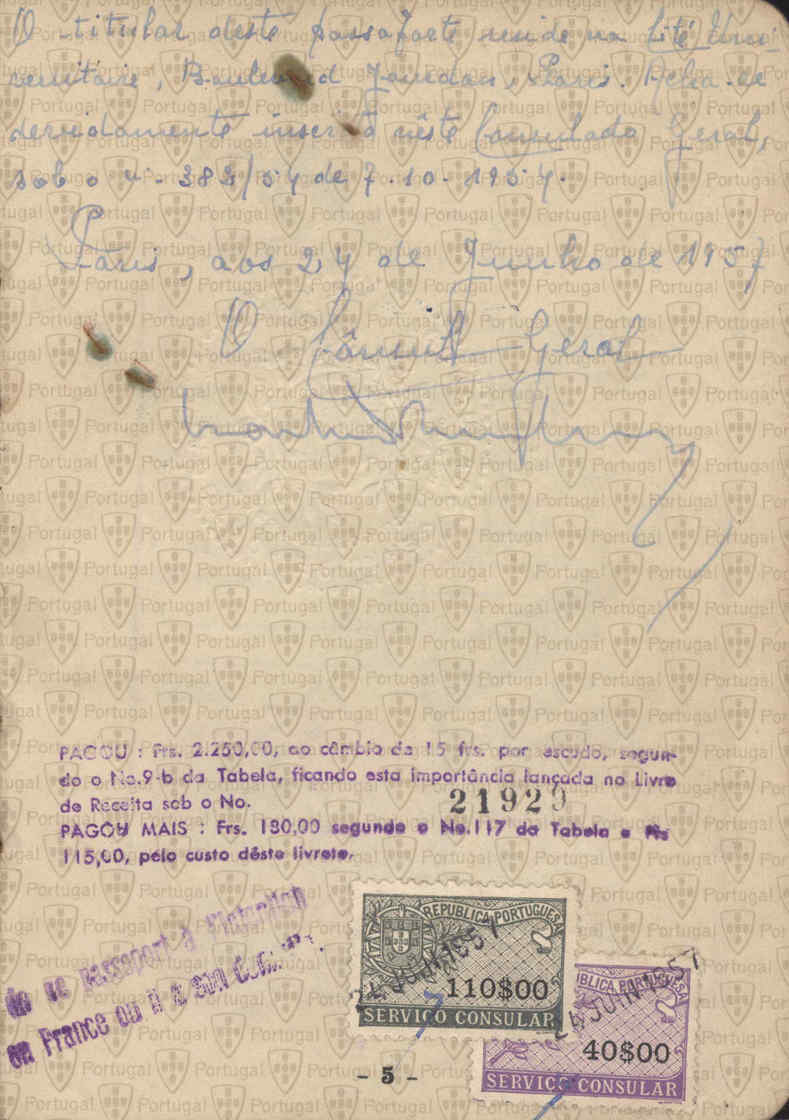 O titular deste passaporte reside na Cité Uni-
versitaire, Boulevard Jourdan, Paris. Acha-se
devidamente inscrito nêste Consulado Geral,
sob o nº 383/54 de 7-10-1954.
Paris, aos 24 de Junho de 1957
O Cônsul Geral
PAGOU : Frs. 2.250,00, ao câmbio de 15 frs. por escudo, segun-
do o No.9-b da Tabela, ficando esta importância lançada no Livro
de Receita sob o No. 21929
PAGOU MAIS : Frs. 180,00 segundo o No.117 da Tabela e Frs
115,00, pelo custo dêste livrete.
de ce passeport à
en France ou il a son
REPUBLICA PORTUGUESA
24 JUIN 1957
110$00
SERVIÇO CONSULAR
BLICA PORTUGUESA
24 JUIN 1957
40$00
SERVIÇO CONSULAR
- 5 -